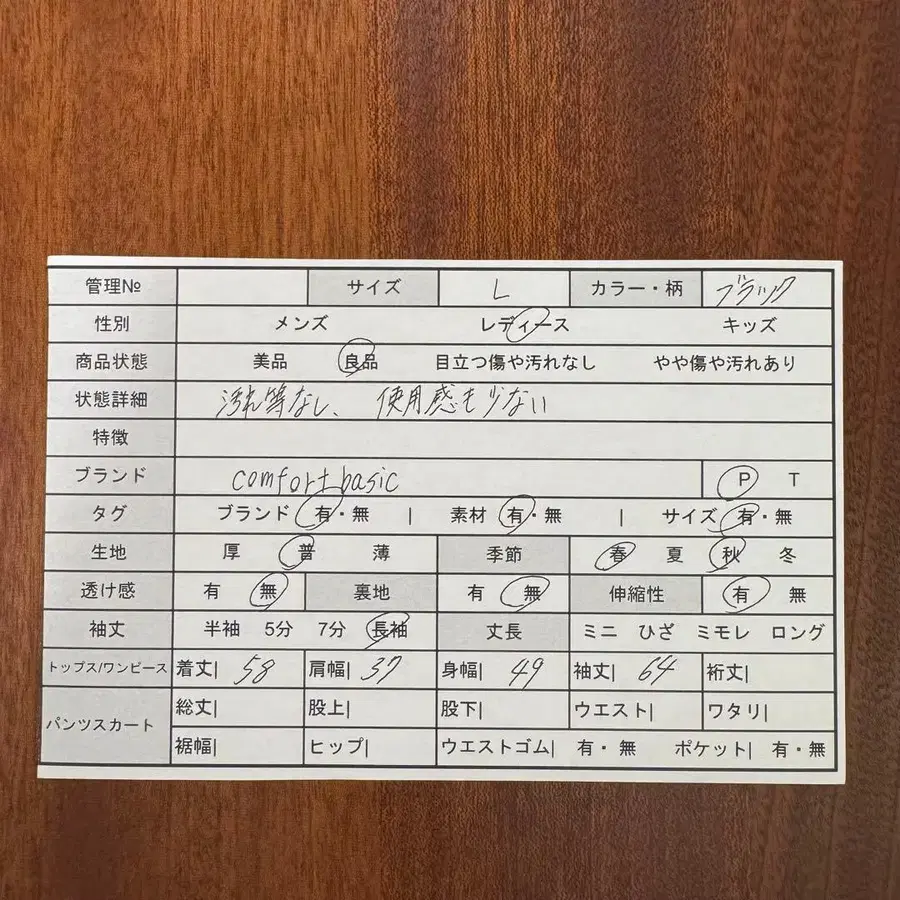 管理№ サイズ L カラー・柄 ブラック
性別 メンズ レディース キッズ
商品状態 美品 良品 目立つ傷や汚れなし やや傷や汚れあり
状態詳細 汚れ等なし、使用感も少ない
特徴
ブランド comfort basic P T
タグ ブランド 有・無 | 素材 有・無 | サイズ 有・無
生地 厚 普 薄 季節 春 夏 秋 冬
透け感 有 無 裏地 有 無 伸縮性 有 無
袖丈 半袖 5分 7分 長袖 丈長 ミニ ひざ ミモレ ロング
トップス/ワンピース 着丈| 58 肩幅| 37 身幅| 49 袖丈| 64 裄丈|
パンツスカート 総丈| 股上| 股下| ウエスト| ワタリ|
裾幅| ヒップ| ウエストゴム| 有・無 ポケット| 有・無